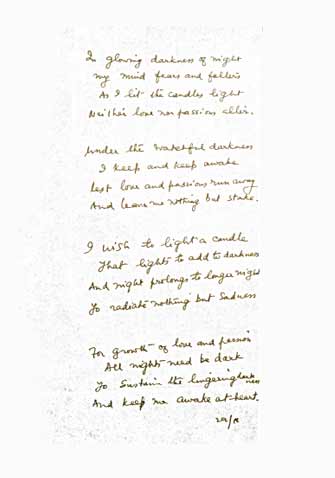 In glowing darkness of night
my mind fears and falters
As I lit the candles light
Neither love nor passions

Under the watchful darkness
I keep and keep awake
Lest love and passions run away
And leave me nothing but stake.

I wish to light a candle
That lights to add to darkness
And night prolongs to longer night
To radiate nothing but sadness

For growth of love and passion
All nights need be dark
To sustain the lingering darkness
And keep me awake at heart.